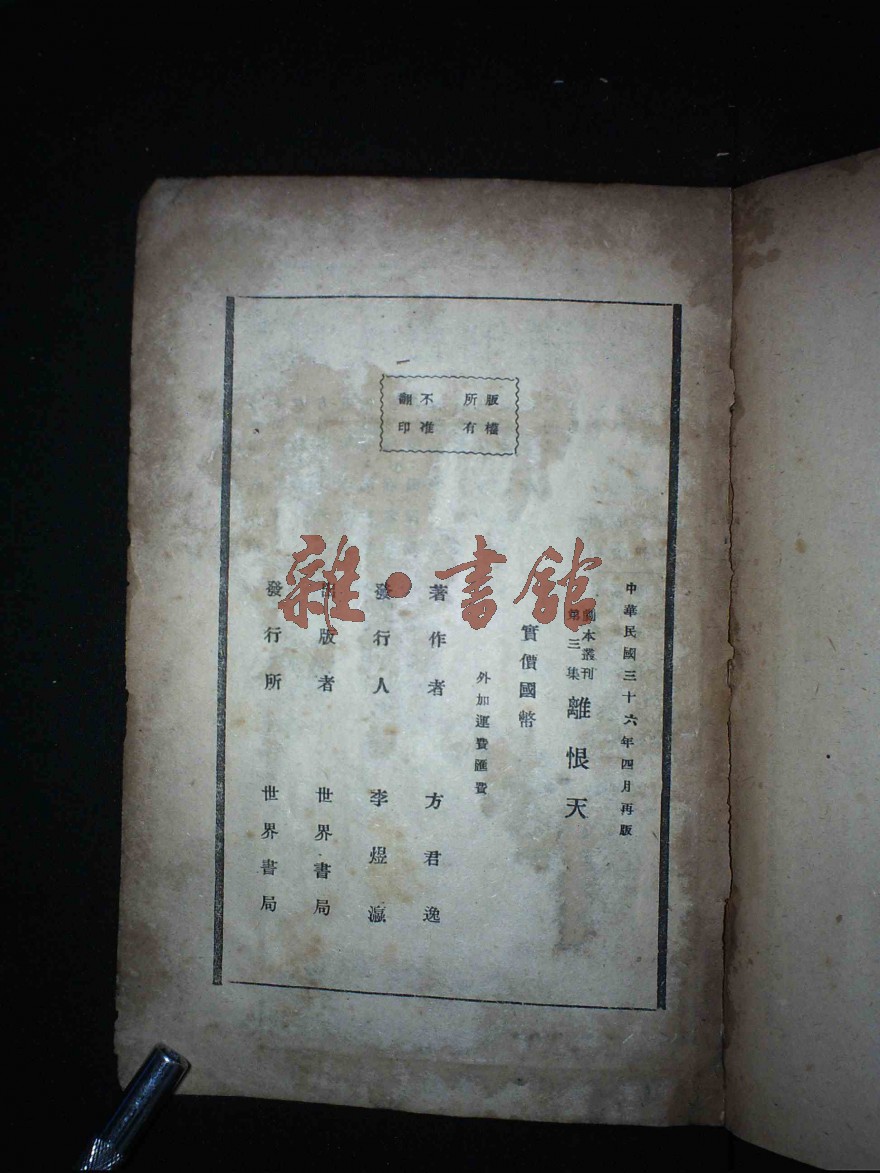 版權所有
不准翻印
中華民國三十六年四月再版
劇本叢刊第三集 離恨天
實價國幣
外加運費匯費
著作者 方君逸
發行人 李煜瀛
出版者 世界書局
發行所 世界書局
雜·書館